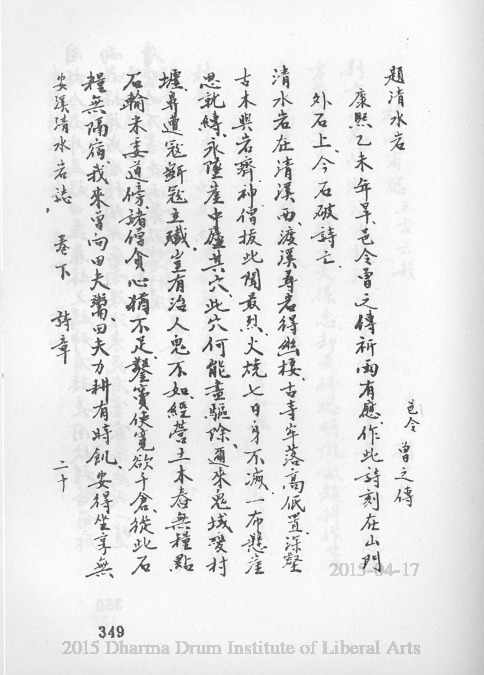 題清水岩
邑令 曾之傳
康熙乙未年旱、邑令曾之傳祈雨有應、作此詩刻在山門
外石上、今石破詩亡、
清水岩在清溪西、渡溪尋岩得幽棲、古寺牢落高低置、深壑
古木與岩齊、神僧拔此閩最烈、火燒七日身不滅、一布懸崖
思就縛永墜崖中廬其穴、此穴何能盡驅除、邇來鬼域嘆村
墟、尋遺寇斷寇立殲、豈有治人鬼不如、經營土木春無糧、點
石輸米委道傍、諸僧貪心猶不足、鑿竇使寬欲千倉、從此石
糧無隔宿、我來曾向田夫鬻、田夫力耕有時飢、安得坐享無
安溪清水岩誌、 卷下 詩章 二十
349
2015-04-17
2015 Dharma Drum Institute of Liberal Arts